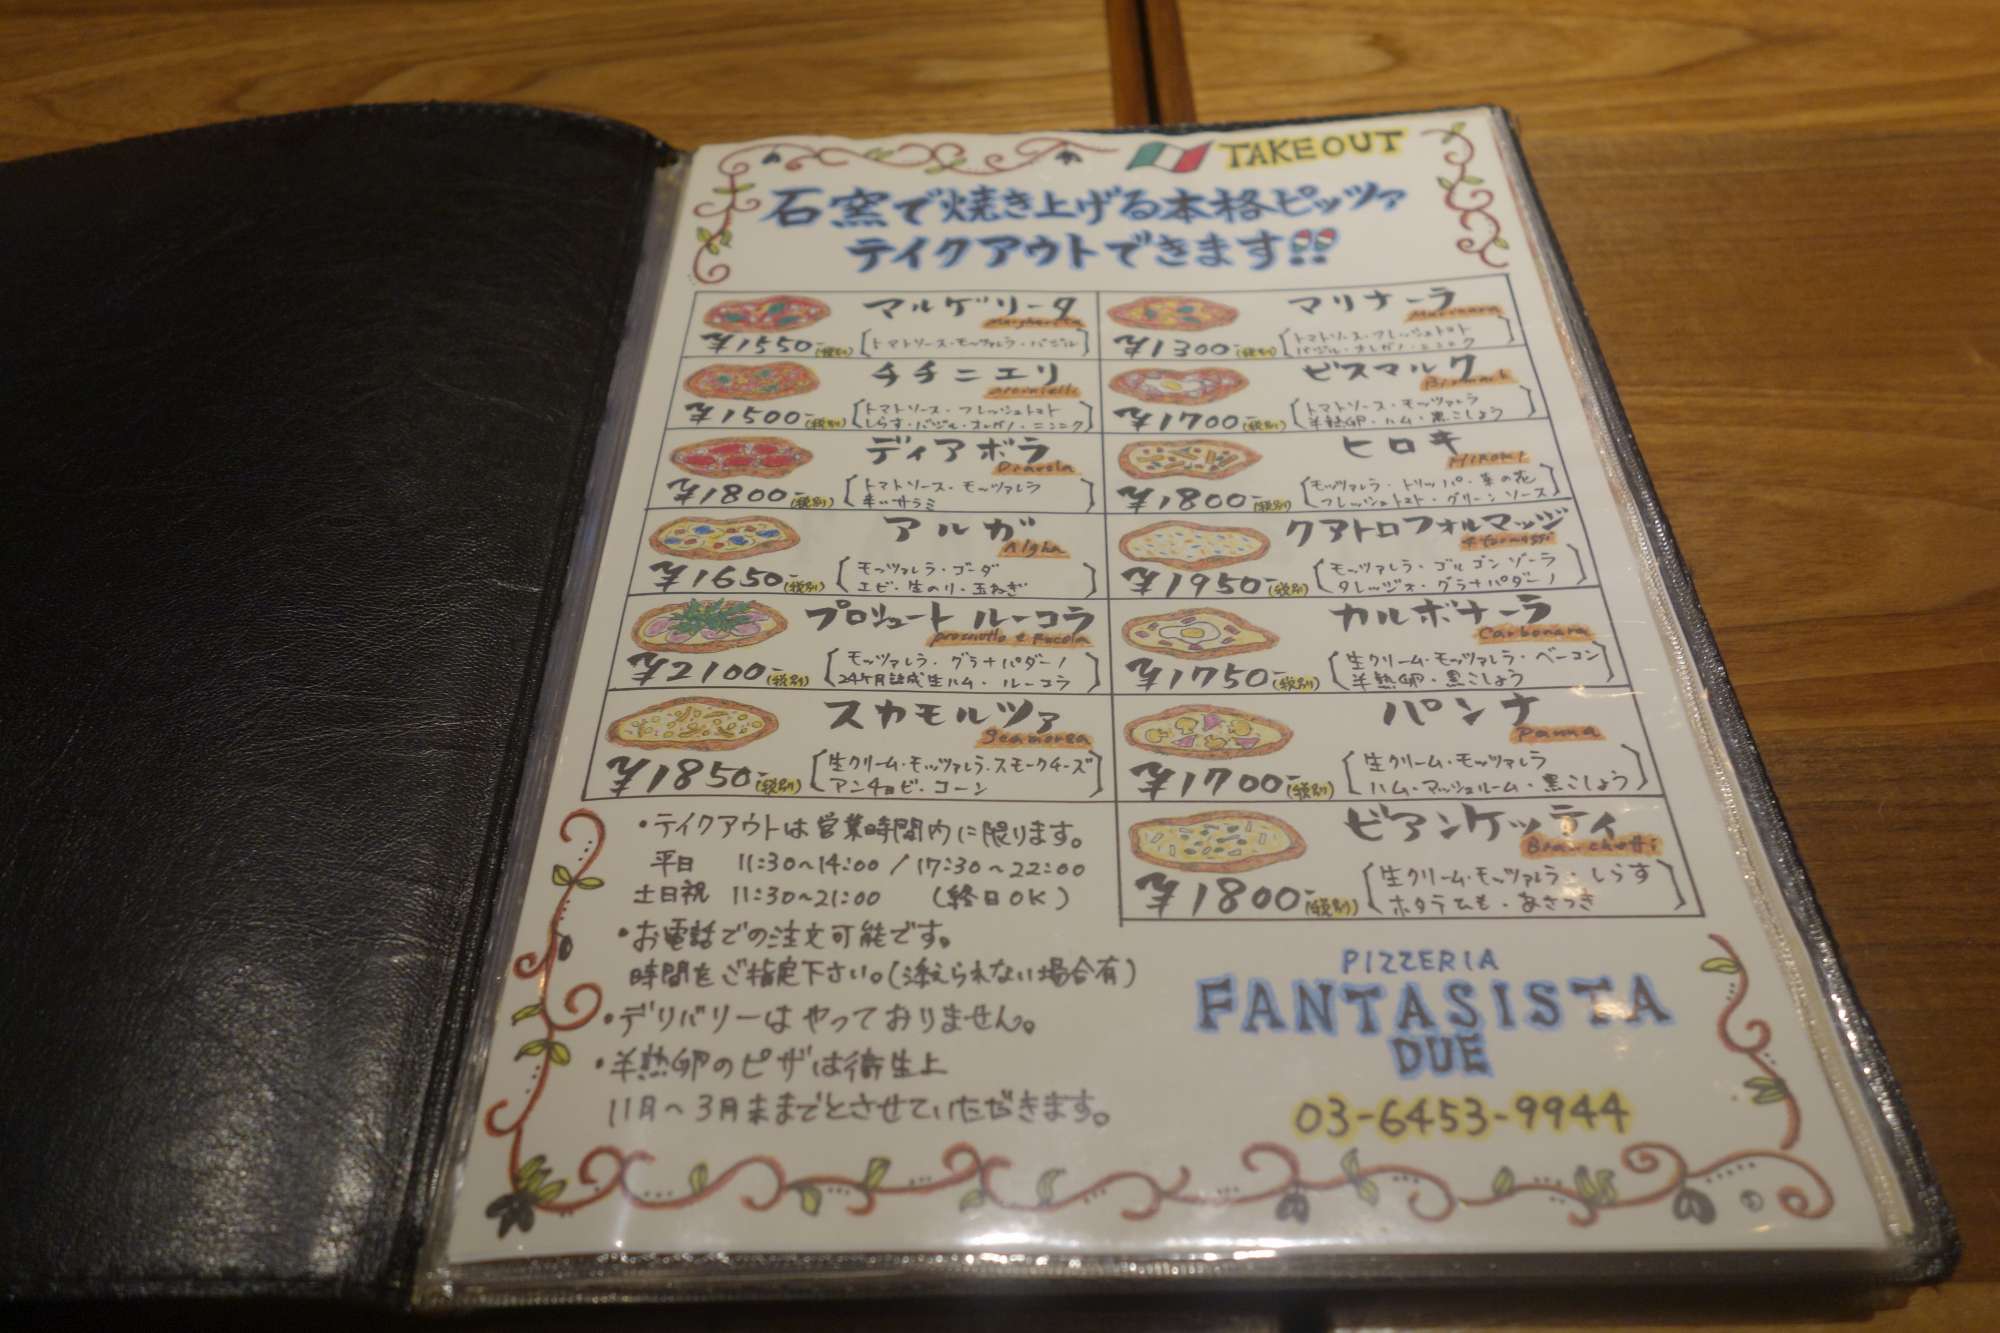 TAKEOUT
石窯で焼き上げる本格ピッツァ
テイクアウトできます!!
マルゲリータ
Margherita
¥1550-(税別)
トマトソース・モッツァレラ・バジル
マリナーラ
Marinara
¥1300-(税別)
トマトソース・フレッシュトマト
バジル・オレガノ・ニンニク
チチニエリ
¥1500-(税別)
トマトソース・フレッシュトマト
しらす・バジル・オレガノ・ニンニク
ビスマルク
Bismark
¥1700-(税別)
トマトソース・モッツァレラ
半熟卵・ハム・黒こしょう
ディアボラ
Diavola
¥1800-(税別)
トマトソース・モッツァレラ
辛いサラミ
ヒロキ
¥1800-(税別)
モッツァレラ・トリッパ・菜の花
フレッシュトマト・グリーンソース
アルガ
Algha
¥1650-(税別)
モッツァレラ・ゴーダ
エビ・生のり・玉ねぎ
クアトロフォルマッジ
4 formaggi
¥1950-(税別)
モッツァレラ・ゴルゴンゾーラ
タレッジォ・グラナパダーノ
プロシュート ルーコラ
prosciutto e rucola
¥2100-(税別)
モッツァレラ・グラナパダーノ
24ヶ月熟成生ハム・ルーコラ
カルボナーラ
Carbonara
¥1750-(税別)
生クリーム・モッツァレラ・ベーコン
半熟卵・黒こしょう
スカモルツァ
Scamorza
¥1850-(税別)
生クリーム・モッツァレラ・スモークチーズ
アンチョビ・コーン
パンナ
Panna
¥1700-(税別)
生クリーム・モッツァレラ
ハム・マッシュルーム・黒こしょう
ビアンケッティ
Bianchetti
¥1800-(税別)
生クリーム・モッツァレラ・しらす
ホタテひも・あさつき
・テイクアウトは営業時間内に限ります。
平日 11:30~14:00 / 17:30~22:00
土日祝 11:30~21:00 (終日OK)
・お電話での注文可能です。
時間をご指定下さい。(添えられない場合有)
・デリバリーはやっておりません。
・半熟卵のピザは衛生上
11月~3月末までとさせていただきます。
PIZZERIA
FANTASISTA
DUE
03-6453-9944